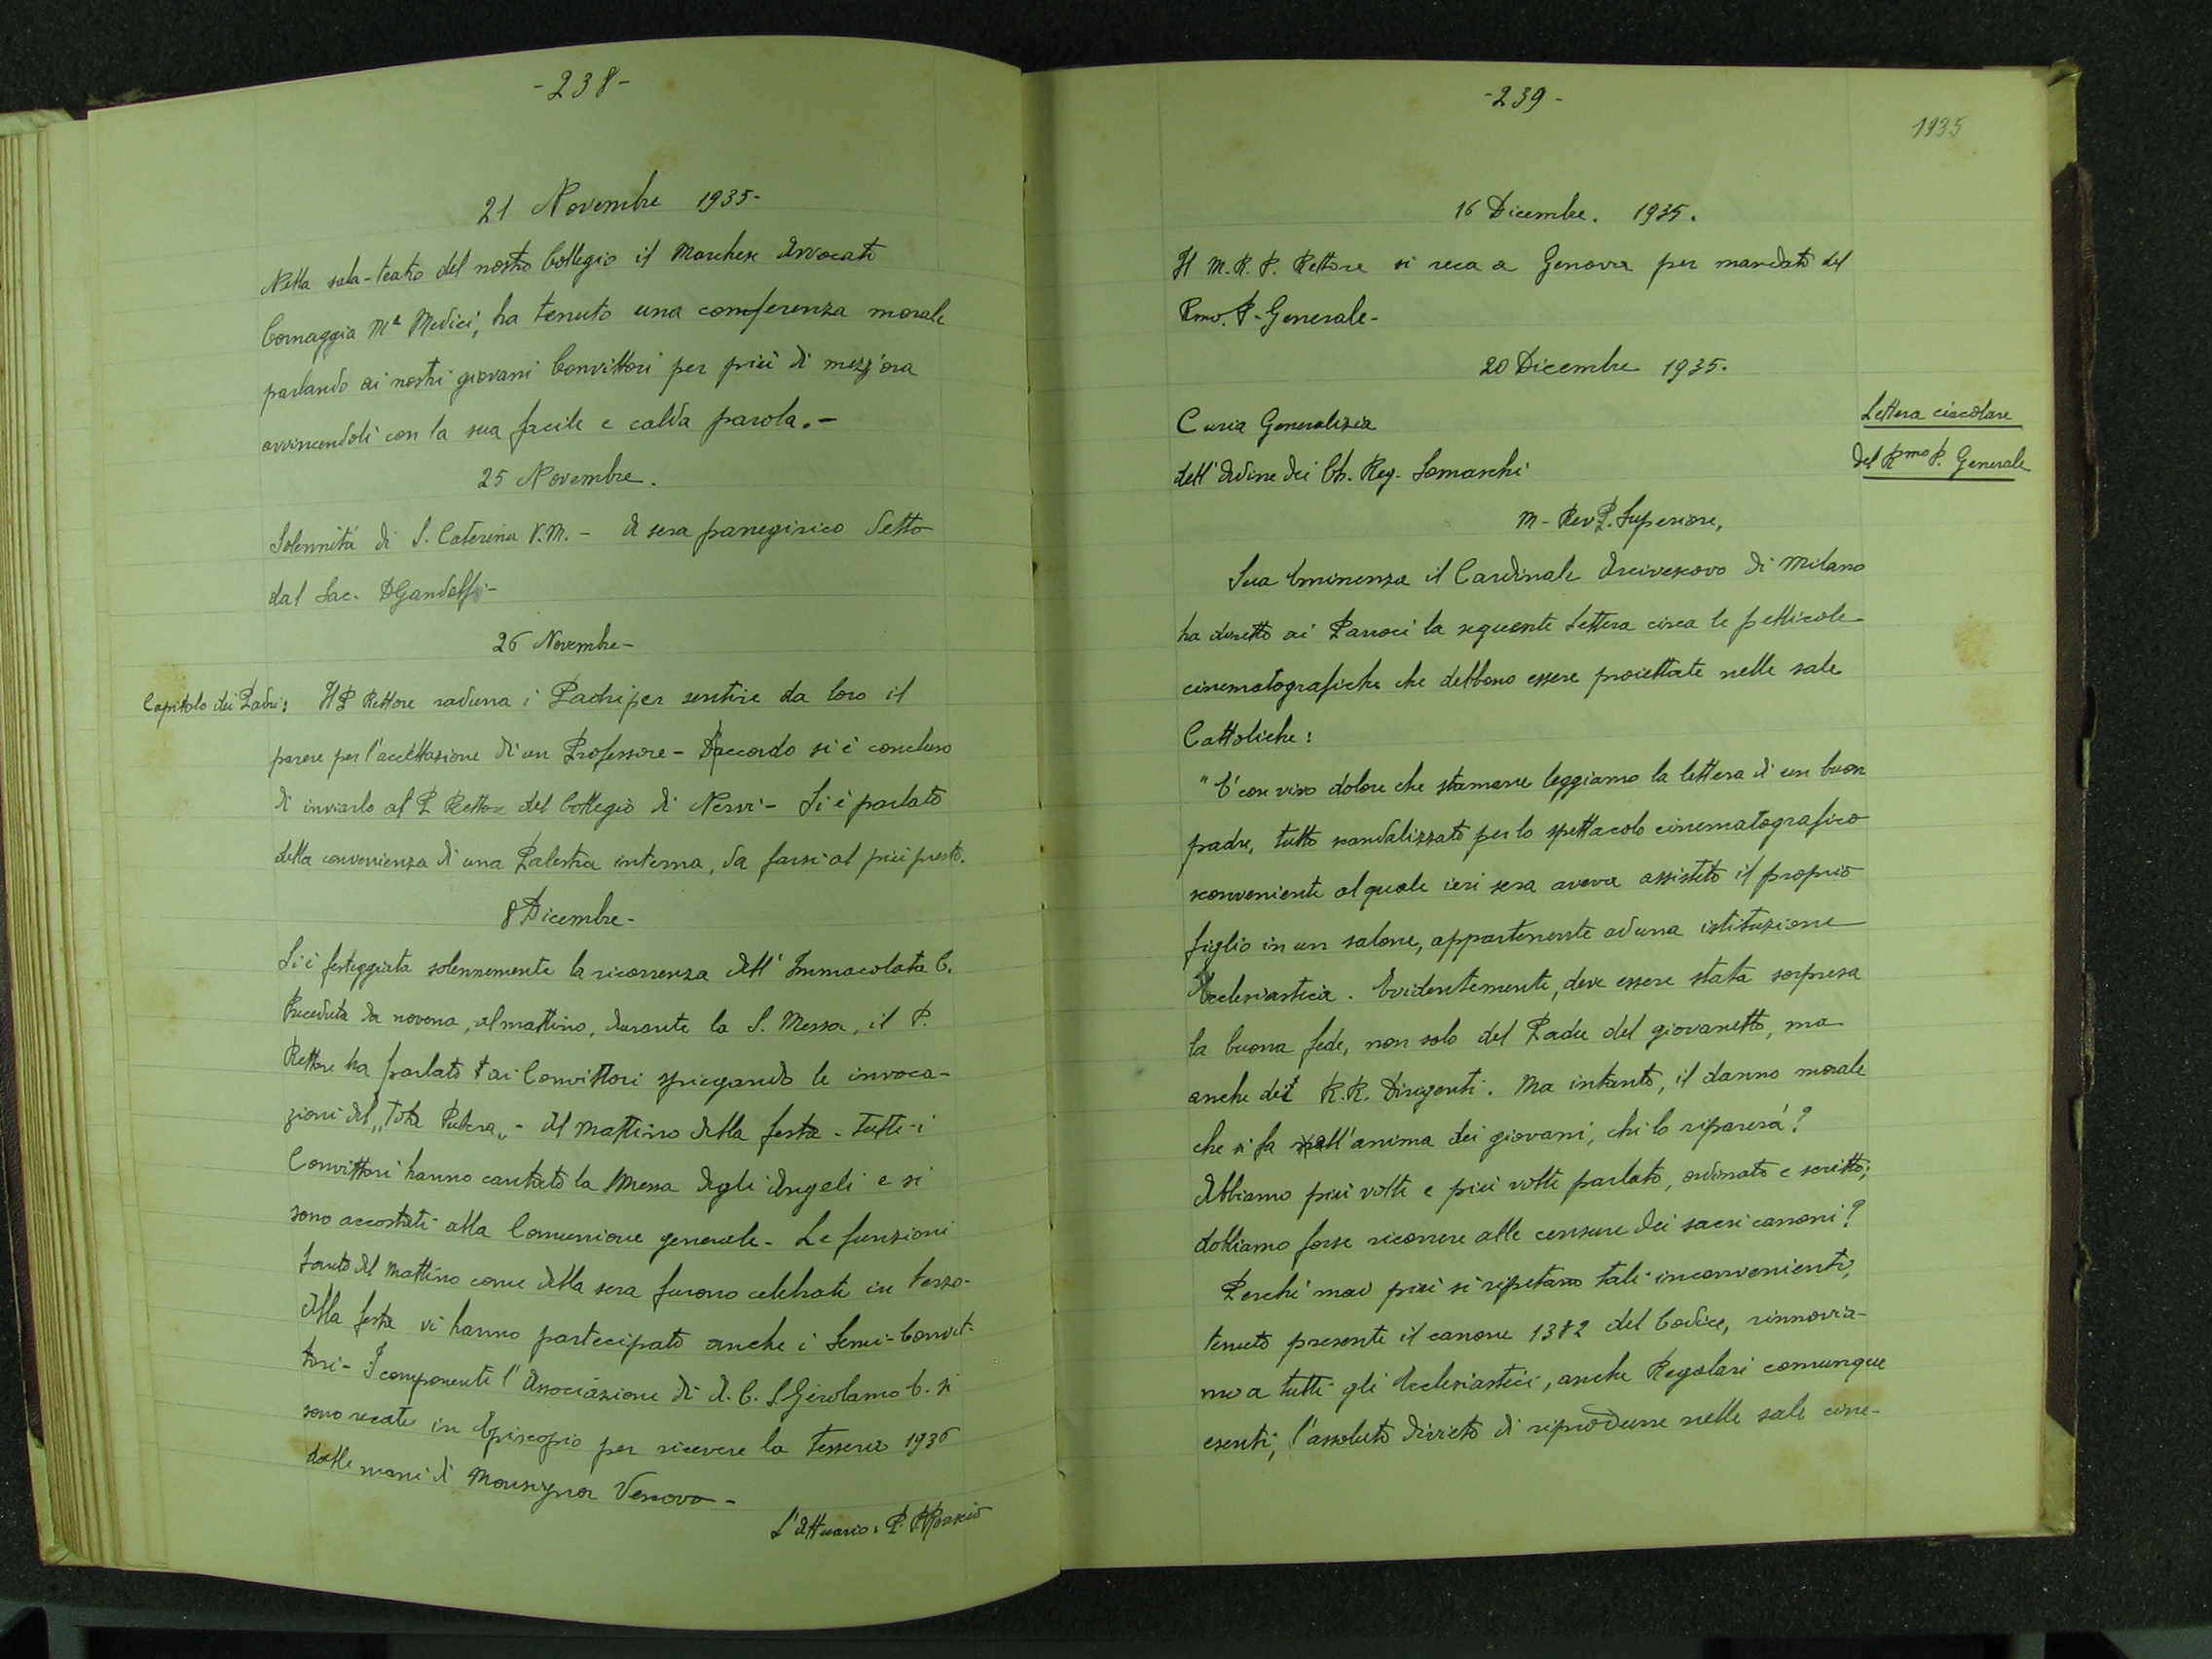 -238-
21 Novembre 1935-
Nella sala-teatro del nostro Collegio il Marchese Avvocato
Cornaggia Mª Medici, ha tenuto una conferenza morale
parlando ai nostri giovani Convittori per più di mezz'ora
avvincendoli con la sua facile e calda parola.-
25 Novembre.
Solennità di S. Caterina V.M. - A sera panegirico detto
dal Sac. D Gandolfi-
26 Novembre-
Capitolo dei Padri: Il P Rettore raduna i Padri per sentire da loro il
parere per l'accettazione di un Professore - D'accordo si è concluso
di inviarlo al P Rettore del Collegio di Nervi- Si è parlato
della convenienza di una Palestra interna, da farsi al più presto.
8 Dicembre-
Si è festeggiata solennemente la ricorrenza dell' Immacolata C.
Preceduta da novena, al mattino, durante la S. Messa, il P.
Rettore ha parlato ai Convittori spiegando le invoca-
zioni del „Tota Pulcra„ - Al mattino della festa - tutti i
Convittori hanno cantato la Messa degli Angeli e si
sono accostati alla Comunione generale- Le funzioni
tanto del mattino come della sera furono celebrate in terzo-
Alla festa vi hanno partecipato anche i Semi-Convit-
tori- I componenti l'Associazione di A. C. S Girolamo E. si
sono recati in Episcopio per ricevere la tessera 1936
dalle mani di Monsignor Vescovo-
L'Attuario: P.
-239-
1935
16 Dicembre. 1935.
Il M. R. P. Rettore si reca a Genova per mandato del
Rmo. P. Generale-
20 Dicembre 1935.
Lettera circolare
del Rmo P. Generale
Curia Generalizia
dell'Ordine dei Ch. Reg. Somaschi
M- Rev P. Superiore,
Sua Eminenza il Cardinale Arcivescovo di Milano
ha diretto ai Parroci la seguente lettera circa le pellicole
cinematografiche che debbono essere proiettate nelle sale
Cattoliche:
"E' con vivo dolore che stamane leggiamo la lettera di un buon
padre, tutto scandalizzato per lo spettacolo cinematografico
sconveniente al quale ieri sera aveva assistito il proprio
figlio in un salone, appartenente ad una istituzione
Ecclesiastica. Evidentemente, deve essere stata sorpresa
la buona fede, non solo del Padre del giovanetto, ma
anche dei R.R. Dirigenti. Ma intanto, il danno morale
che si fa all'anima dei giovani, chi lo riparerà?
Abbiamo più volte e più volte parlato, ordinato e scritto;
dobbiamo forse ricorrere alle censure dei sacri canoni?
Perchè mai più si ripetano tali inconvenienti,
tenuto presente il canone 1382 del Codice, rinnovia-
mo a tutti gli Ecclesiastici, anche Regolari comunque
esenti, l'assoluto divieto di riprodurre nelle sale cine-